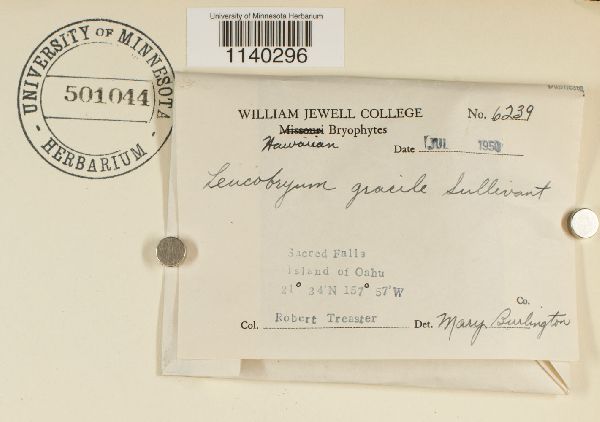 University of Minnesota Herbarium
1140296
UNIVERSITY OF MINNESOTA
501044
· HERBARIUM ·
WILLIAM JEWELL COLLEGE
No. 6239
Missouri Bryophytes
Hawaiian
Date JUL 1950
Leucobryum gracile Sullivant
Sacred Falls
Island of Oahu
21° 34'N 157° 57'W
Co.
Col. Robert Treaster Det. Mary Burlington